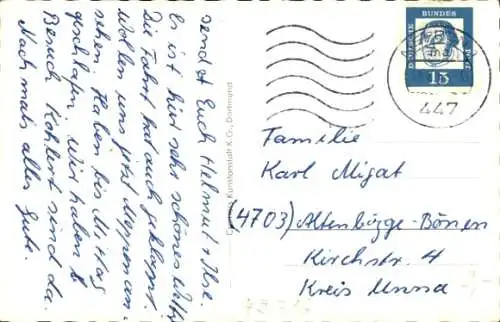 sendet Euch Helmut + Ilse
Es ist hier sehr schönes
Die Fahrt hat auch geklappt.
Wollen uns jetzt Meppen an-
sehen. Haben bis Mittag
geschlafen. Wir haben
Besuch. sind da.
Nochmals alles
Gute.
Kunstanstalt K.G., Dortmund
DEUTSCHE BUNDESPOST
15
447
Familie
Karl Migat
(4703) Altenbögge-Bönen
Kirchstr. 4
Kreis Unna